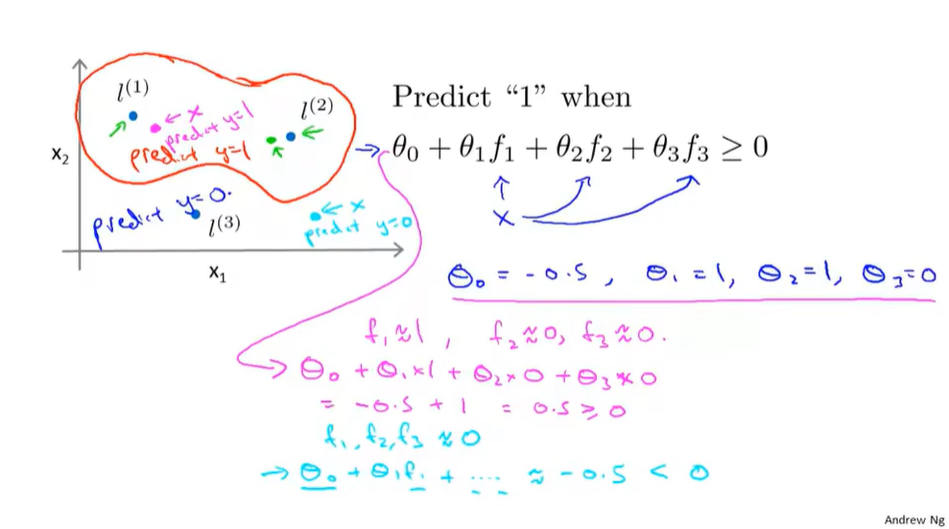 l(1)
← x
predict y=1
l(2)
predict y=1
x₂
predict y=0.
l(3)
← x
predict y=0
x₁
Predict “1” when
→ θ₀ + θ₁f₁ + θ₂f₂ + θ₃f₃ ≥ 0
x
θ₀ = -0.5, θ₁ = 1, θ₂ = 1, θ₃ = 0
f₁ ≈ 1, f₂ ≈ 0, f₃ ≈ 0.
→ θ₀ + θ₁×1 + θ₂×0 + θ₃×0
= -0.5 + 1 = 0.5 ≥ 0
f₁, f₂, f₃ ≈ 0
→ θ₀ + θ₁f₁ + .... ≈ -0.5 < 0
Andrew Ng